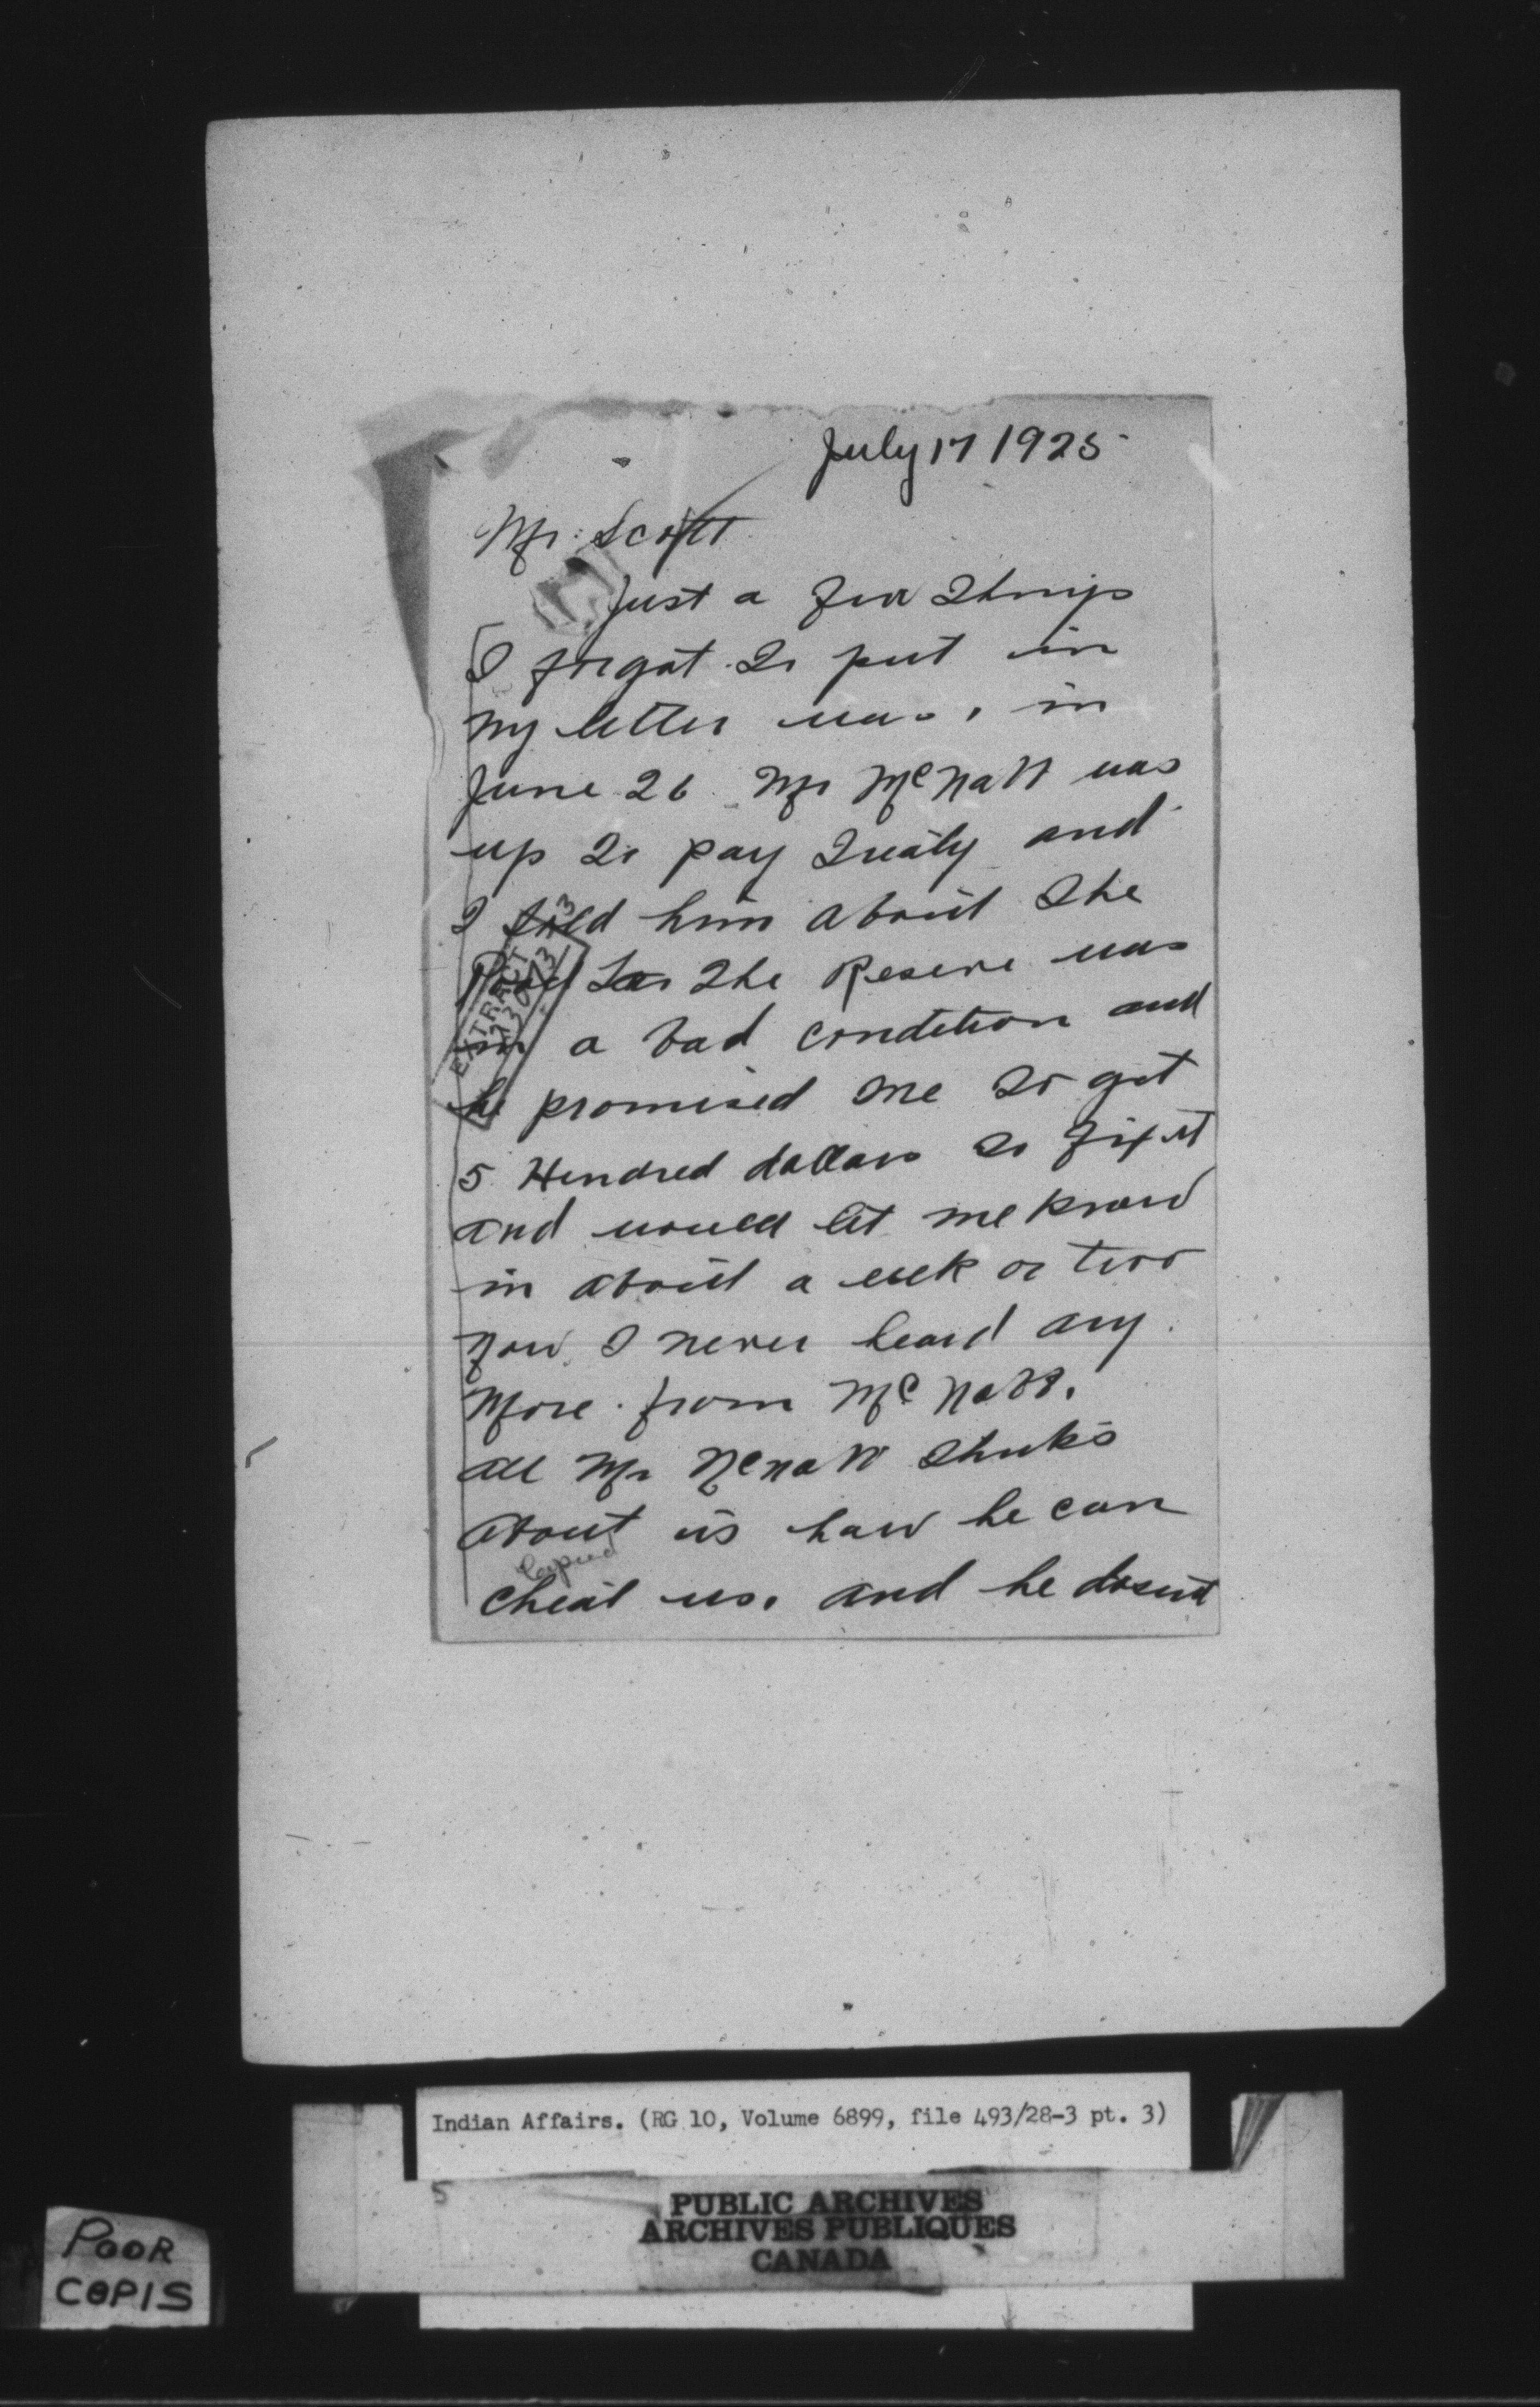 July 17 1925
Mr. Scott
Just a few things
I forgot to put in
my letter was, in
June 26 Mr McNatt was
up to pay Treaty and
I told him about the
Road to the Reserve was
in a bad condition and
he promised me to get
5 Hundred dollars to fix it
and would let me know
in about a week or two
now I never heard any
more from McNatt.
all Mr McNatt thinks
about us how he can
copied
cheat us. and he dosent
EXTRACT
Indian Affairs. (RG 10, Volume 6899, file 493/28-3 pt. 3)
5
PUBLIC ARCHIVES
ARCHIVES PUBLIQUES
CANADA
POOR
COPIS